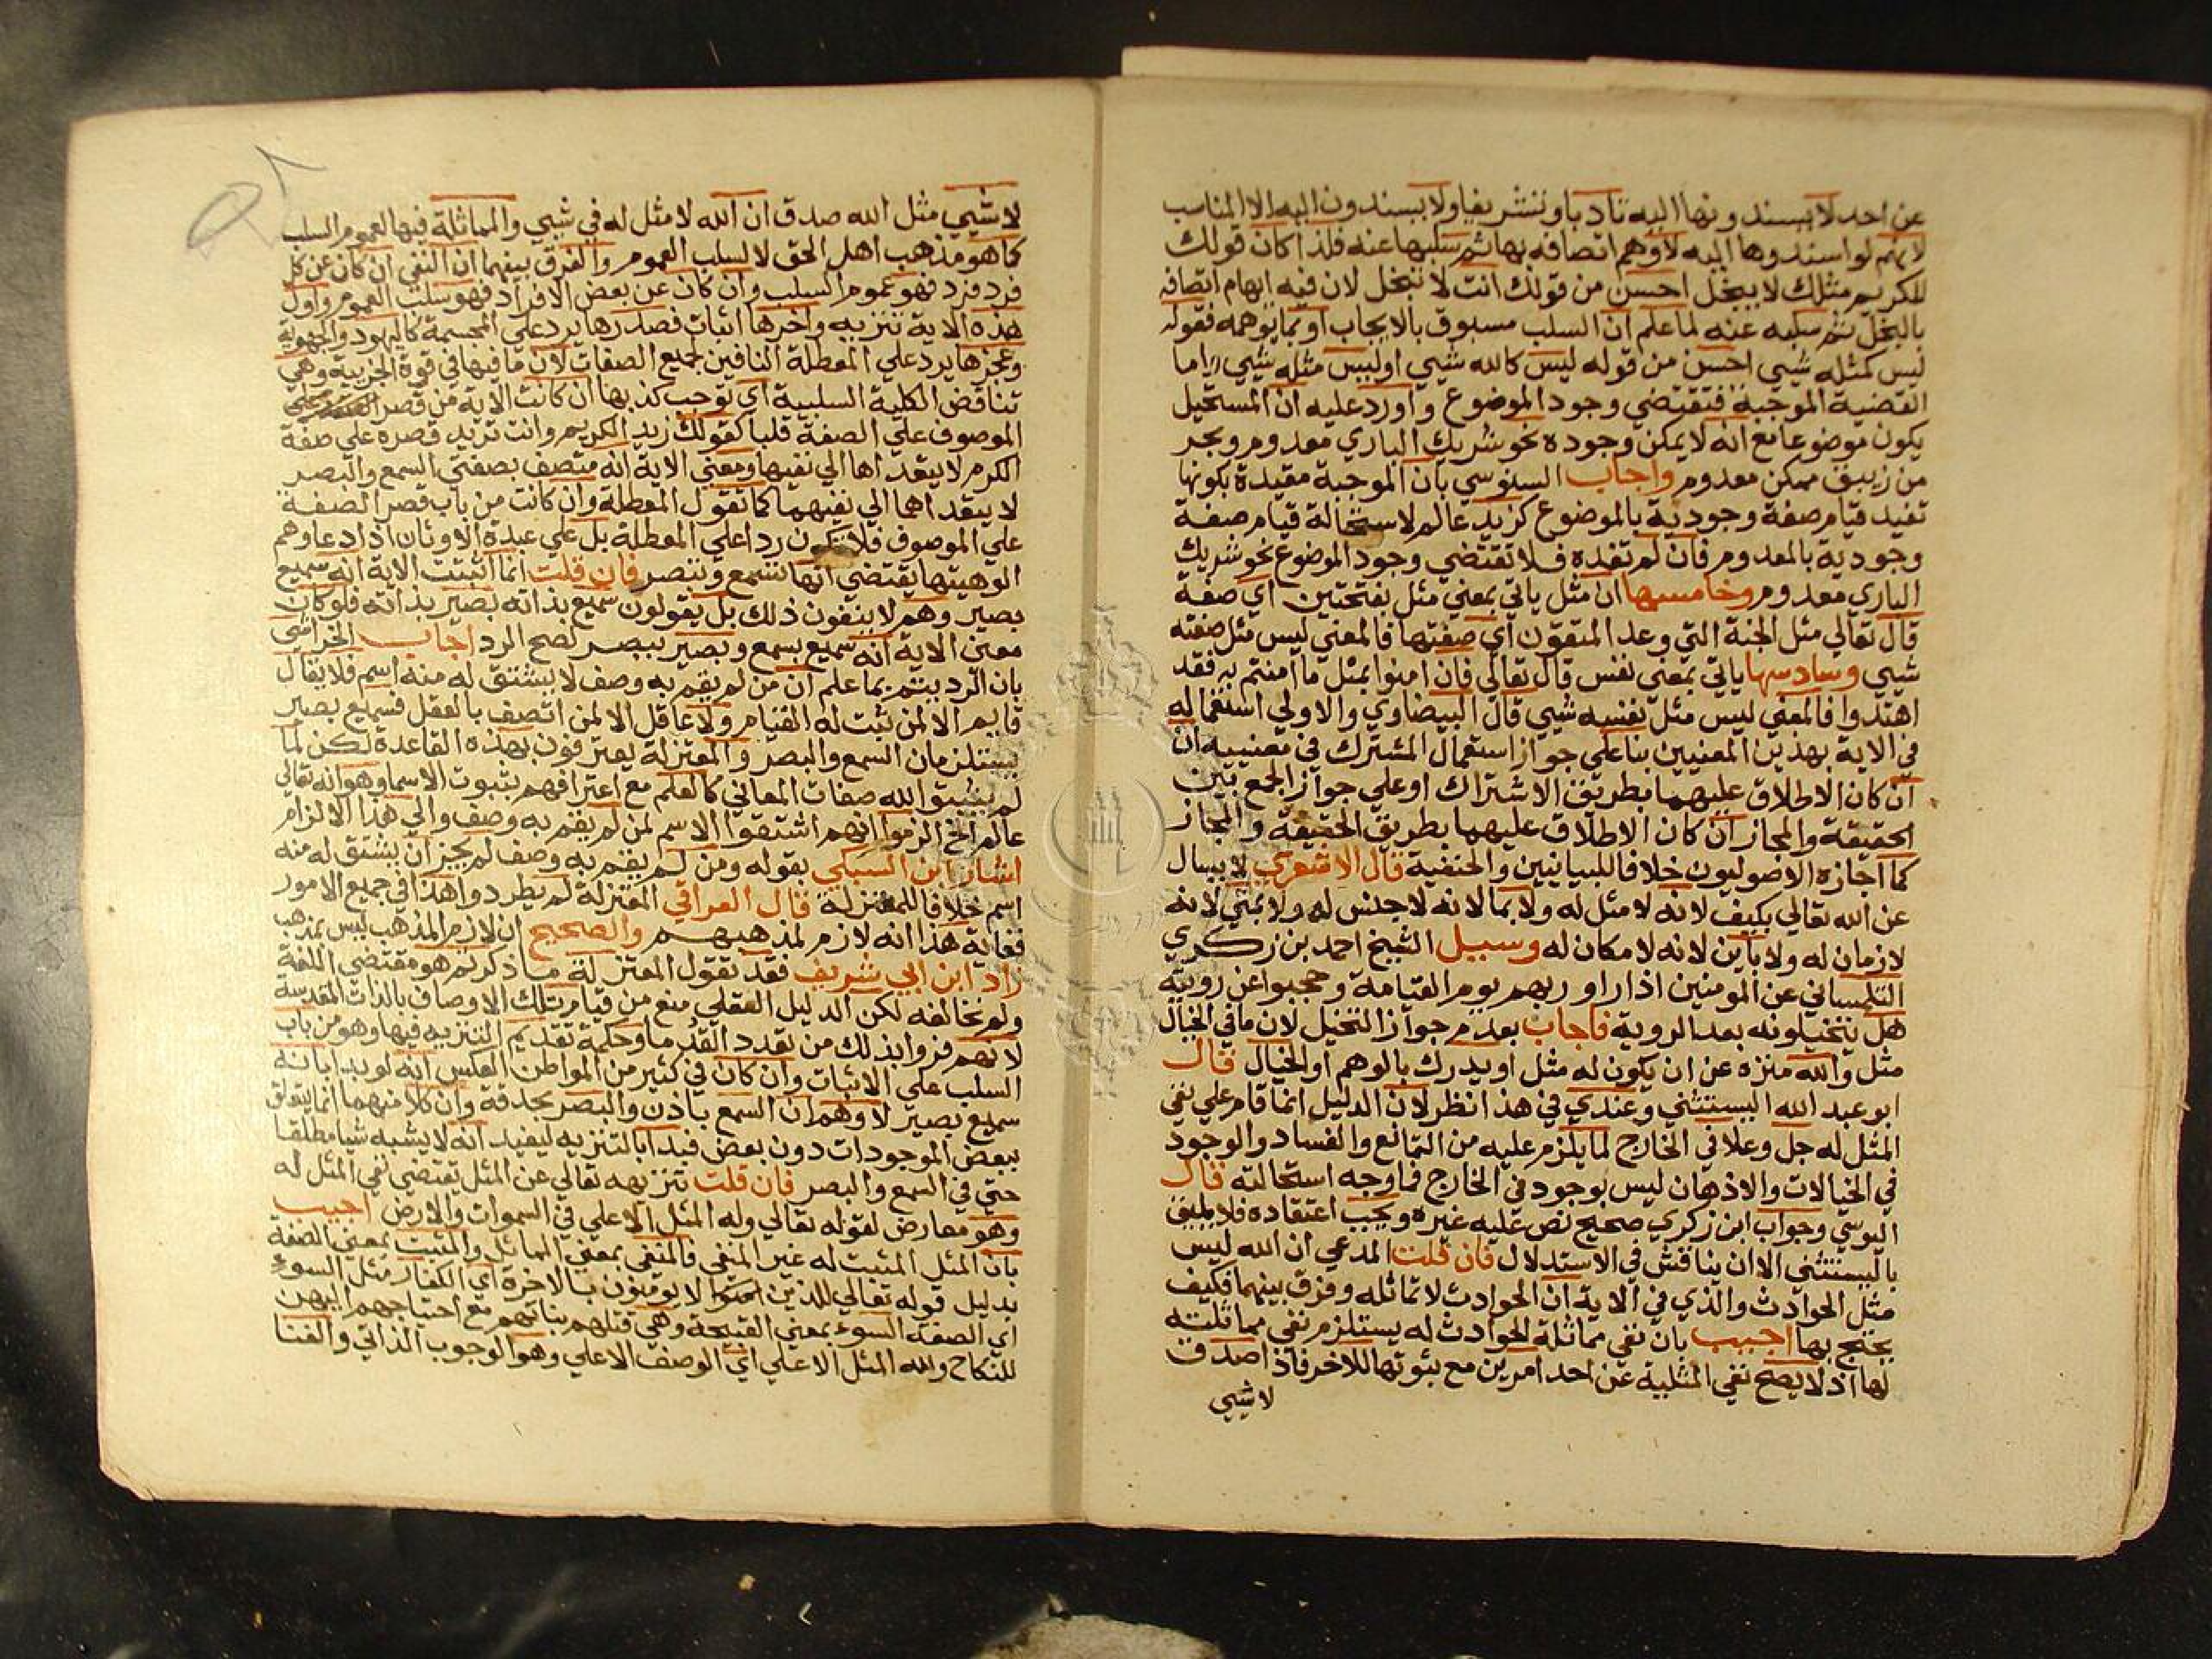 عن احد لا يسندونها اليه تادبا وتشريفا ولا يسندون اليه الا المناسب
لانهم لو اسندوها اليه لاوهم اتصافه بها ثم سلبها عنه فلذا كان قولك
للكريم مثلك لا يبخل احسن من قولك انت لا تبخل لان فيه ايهام اتصافه
بالبخل ثم سلبه عنه لما علم ان السلب مسبوق بالايجاب او بما يوهمه فقوله
ليس كمثله شيي احسن من قوله ليس كالله شيي او ليس مثله شيي واما
القضية الموجبة فتقتضي وجود الموضوع واورد عليه ان المستحيل
يكون موضوعا مع انه لا يمكن وجوده نحو شريك الباري معدوم وبحر
من زيبق ممكن معدوم واجاب السنوسي بان الموجبة مقيدة بكونها
تفيد قيام صفة وجودية بالموضوع كزيد عالم لاستحالة قيام صفة
وجودية بالمعدوم فان لم تفده فلا تقتضي وجود الموضوع نحو شريك
الباري معدوم وخامسها ان مثل ياتي بمعني مثل بفتحتين اي صفة
قال تعالي مثل الجنة التي وعد المتقون اي صفتها فالمعني ليس مثل صفته
شيي وسادسها ياتي بمعني نفس قال تعالي فان امنوا بمثل ما امنتم به فقد
اهتدوا فالمعني ليس مثل نفسه شيي قال البيضاوي والاولي استعماله
في الاية بهذين المعنيين بنا علي جواز استعمال المشترك في معنييه ان
ان كان الاطلاق عليهما بطريق الاشتراك او علي جواز الجمع بين
الحقيقة والمجاز ان كان الاطلاق عليهما بطريق الحقيقة والمجاز
كما اجازه الاصوليون خلافا للبيانيين والحنفية قال الاشعري لا يسال
عن الله تعالي بكيف لانه لا مثل له ولا بما لانه لا جنس له ولا بمتي لانه
لا زمان له ولا باين لانه لا مكان له وسيل الشيخ احمد بن زكري
التلمساني عن المومنين اذا راو ربهم يوم القيامة وحجبوا عن رويته
هل يتخيلونه بعد الروية فاجاب بعدم جواز التخيل لان ما في الخيال
مثل والله منزه عن ان يكون له مثل او يدرك بالوهم او الخيال قال
ابو عبد الله البستثني وعندي في هذا نظر لان الدليل انما قام علي نفي
المثل له جل وعلا في الخارج لما يلزم عليه من التمانع والفساد والوجود
في الخيالات والاذهان ليس بوجود في الخارج فما وجه استحالته قال
اليوسي وجواب ابن زكري صحيح نص عليه غيره ويجب اعتقاده فلا يليق
بالبستثني الا ان يناقش في الاستدلال فان قلت المدعي ان الله ليس
مثل الحوادث والذي في الاية ان الحوادث لا تماثله وفرق بينهما فكيف
يحتج بها اجيب بان نفي مماثلة الحوادث له يستلزم نفي مماثلته
لها اذ لا يصح نفي المثلية عن احد امرين مع ثبوتها للاخر فاذا صدق
لا شيي
لا شيي مثل الله صدق ان الله لا مثل له في شيي والمماثلة فيها لعموم السلب
كما هو مذهب اهل الحق لا لسلب العموم والفرق بينهما ان النفي ان كان عن كل
فرد فرد فهو عموم السلب وان كان عن بعض الافراد فهو سلب العموم واول
هذه الاية تنزيه واخرها اثبات فصدرها يرد علي المجسمة كاليهود والجهوية
وعجزها يرد علي المعطلة النافين لجميع الصفات لان ما فيها في قوة الجزيية وهي
تناقض الكلية السلبية اي توجب كذبها ان كانت الاية من قصر
الموصوف علي الصفة قلبا كقولك زيد الكريم وانت تريد قصره علي صفة
الكرم لا يتعداها الي نفيها ومعني الاية انه متصف بصفتي السمع والبصر
لا يتعداهما الي نفيهما كما تقول المعطلة وان كانت من باب قصر الصفة
علي الموصوف فلا تكون ردا علي المعطلة بل علي عبدة الاوثان اذ ادعاوهم
الوهيتها يقتضي انها تسمع وتبصر فان قلت انما اثبتت الاية انه سميع
بصير وهم لا ينفون ذلك بل يقولون سميع بذاته بصير بذاته فلو كان
معني الاية انه سميع بسمع وبصير ببصر لصح الرد اجاب الخراشي
بان الرد يتم بما علم ان من لم يقم به وصف لا يشتق له منه اسم فلا يقال
قايم الا لمن ثبت له القيام ولا عاقل الا لمن اتصف بالعقل فسميع بصير
يستلزمان السمع والبصر والمعتزلة يعترفون بهذه القاعدة لكن لما
لم يثبتوا لله صفات المعاني كالعلم مع اعترافهم بثبوت الاسما وهو انه تعالي
عالم الخ الزموا انهم اشتقوا الاسم لمن لم يقم به وصف والي هذا الالزام
اشار ابن السبكي بقوله ومن لم يقم به وصف لم يجز ان يشتق له منه
اسم خلافا للمعتزلة قال العراقي المعتزلة لم يطردوا هذا في جميع الامور
فغاية هذا انه لازم لمذهبهم والصحيح ان لازم المذهب ليس بمذهب
زاد ابن ابي شريف فقد تقول المعتزلة ما ذكرتم هو مقتضي اللغة
ولم نخالفه لكن الدليل العقلي منع من قيام تلك الاوصاف بالذات المقدسة
لانهم فروا بذلك من تعدد القدما وحكمة تقديم التنزيه فيها وهو من باب
السلب علي الاثبات وان كان في كثير من المواطن العكس انه لو بدا بانه
سميع بصير لاوهم ان السمع باذن والبصر بحدقة وان كلا منهما انما يتعلق
ببعض الموجودات دون بعض فبدا بالتنزيه ليفيد انه لا يشبه شيا مطلقا
حتي في السمع والبصر فان قلت تنزيهه تعالي عن المثل يقتضي نفي المثل له
وهو معارض لقوله تعالي وله المثل الاعلي في السموات والارض اجيب
بان المثل المثبت له غير المنفي فالمنفي بمعني المماثل والمثبت بمعني الصفة
بدليل قوله تعالي للذين لا يومنون بالاخرة اي الكفار مثل السوء
اي الصفة السوء بمعني القبيحة وهي قتلهم بناتهم مع احتياجهم اليهن
للنكاح ولله المثل الاعلي اي الوصف الاعلي وهو الوجوب الذاتي والغنا